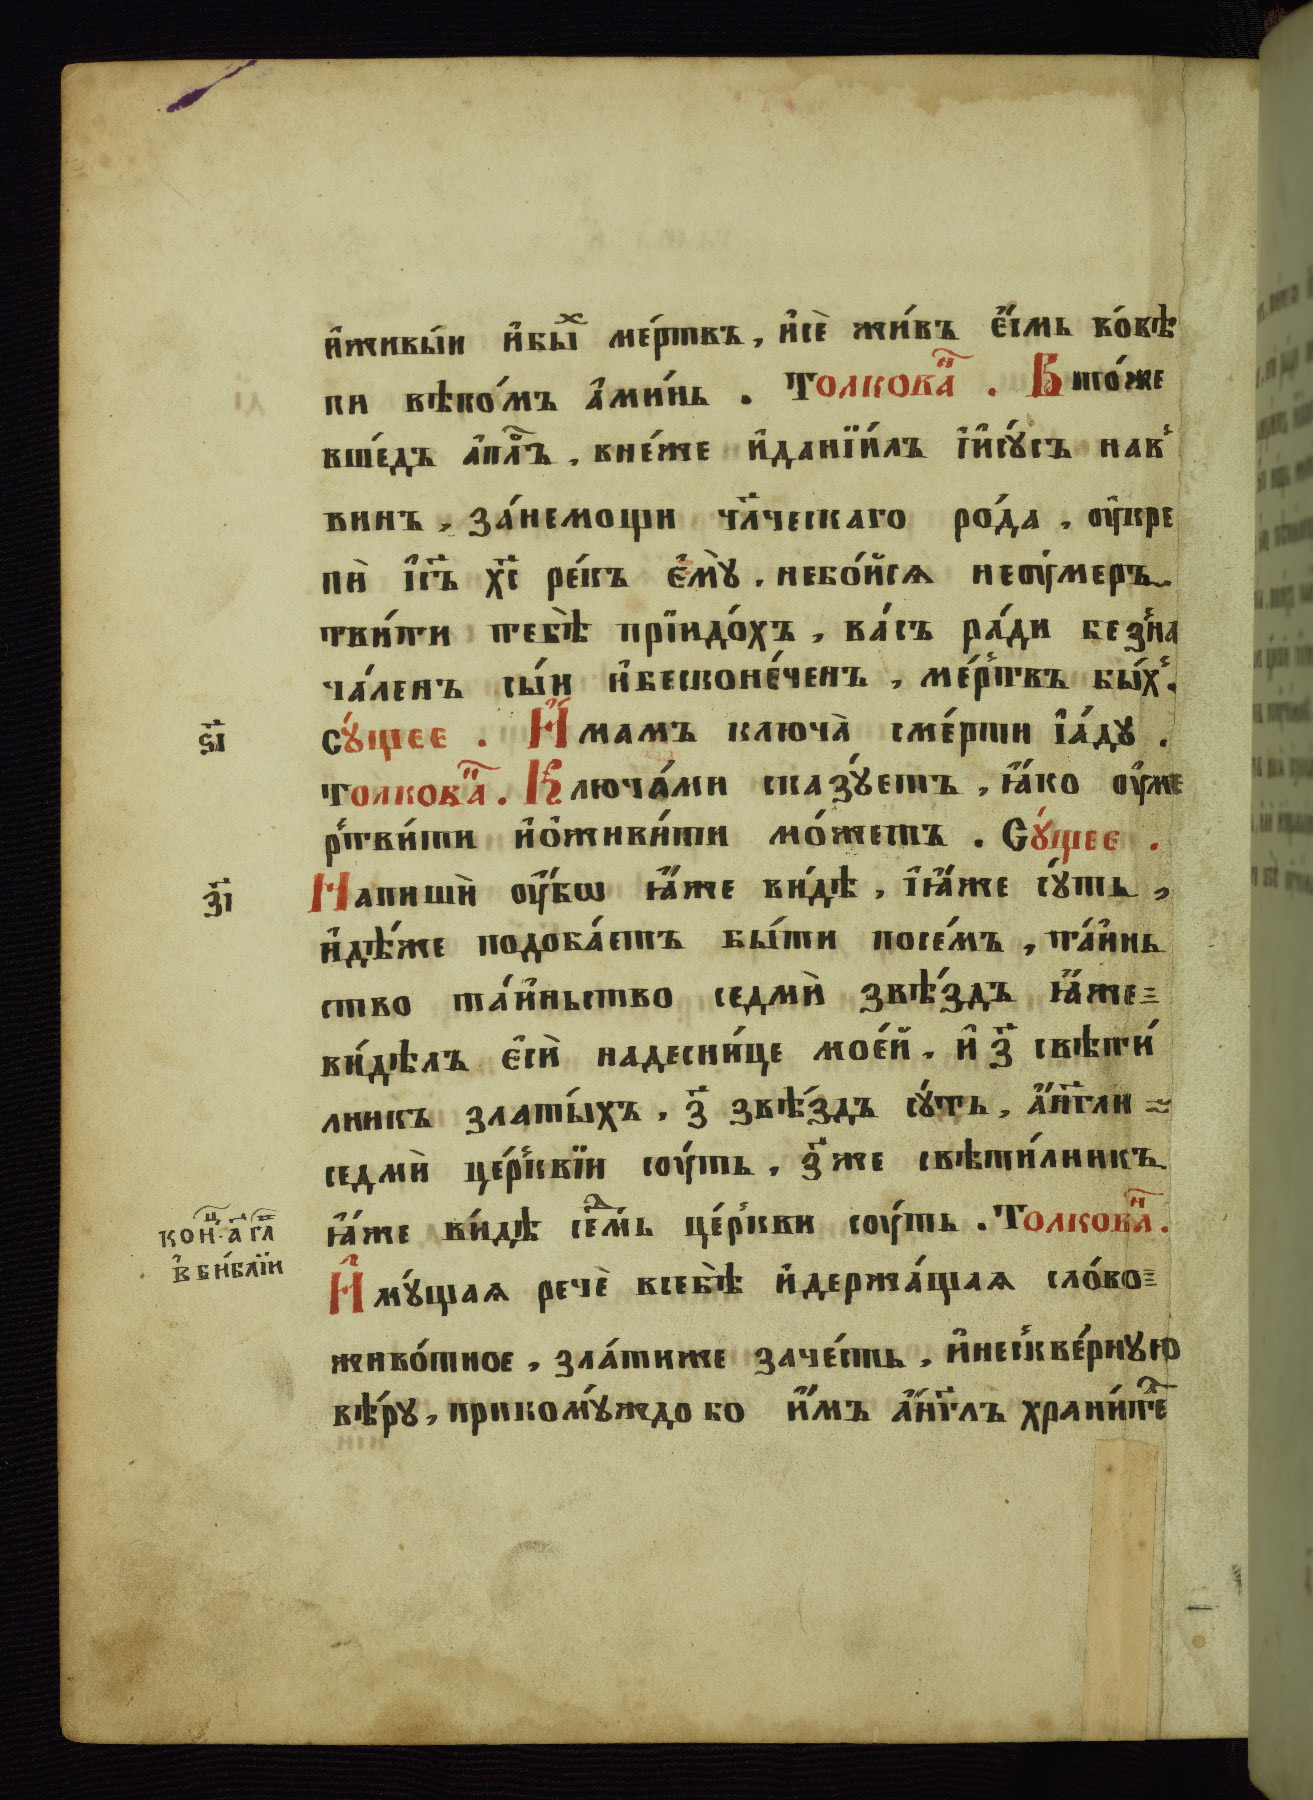 и҆живы́и и҆бы́х ме́ртвъ, и҆сѐ жи́въ є҆́смь во́вѣ
ки вѣко́мъ а҆ми́нь . Толкова́н . В то́же
вше́дъ а҆пл҃ъ , вне́же и҆данїи́лъ і҆и҆су́съ нав
винъ , за́немощи чл҃ческаго ро́да , оу҆кре
пѝ і҆с҃ъ х҃с ре́къ є҆мꙋ̀ . небо́йсѧ неоу҆мер
тви́ти тебѣ̀ прїидо́хъ , ва́съ ра́ди безна
ча́ленъ сы́и и҆бесконе́ченъ , ме́ртвъ бы́х .
Сꙋ́щее . И҆́мамъ ключа̀ сме́рти і҆а́дꙋ .
Толкова́н . Ключа́ми сказꙋ́етъ , ꙗ҆́ко оу҆ме
ртви́ти и҆о҆живи́ти мо́жетъ . Сꙋ́щее .
Напишѝ оу҆́бѡ ꙗ҆́же ви́дѣ , і҆ꙗ҆́же сꙋ́ть ,
и҆дѣ́же подоба́етъ бы́ти посе́мъ , та́и҆нь
ство та́и҆ньство седмѝ звѣ́здъ ꙗ҆́же
ви́дѣлъ є҆сѝ надесни́це мое́й . и҆ з҃ свѣти́
лникъ златы́хъ , з҃ звѣ́здъ сꙋ́ть , а҆́нг҃ли
седмѝ це́рквїи соу́ть , з҃ же свѣти́лникъ
ꙗ҆́же ви́дѣ се́дмь це́ркви соу́ть . Толкова́н .
И҆мꙋ́щаѧ речѐ всебѣ̀ и҆держа́щаѧ сло́во
живо́тное , зла́тиже заче́сть , и҆нескве́рнꙋю
вѣ́рꙋ , прикомꙋ́ждо бо и҆́мъ а҆́нг҃лъ храни́те
ѕ҃і
з҃і
кон҃ц а҃ гл҃
в҆ би́блїи